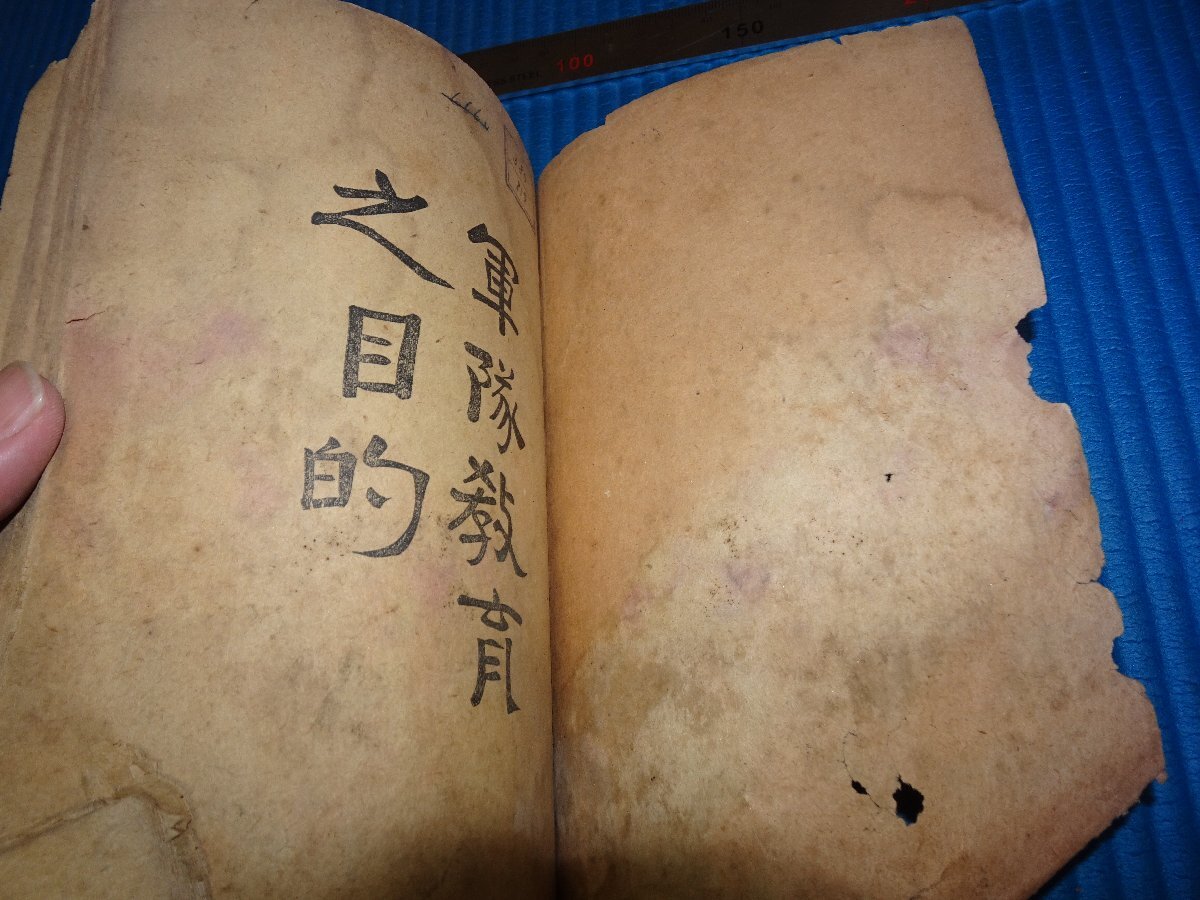 軍隊教育
之目的
100
150